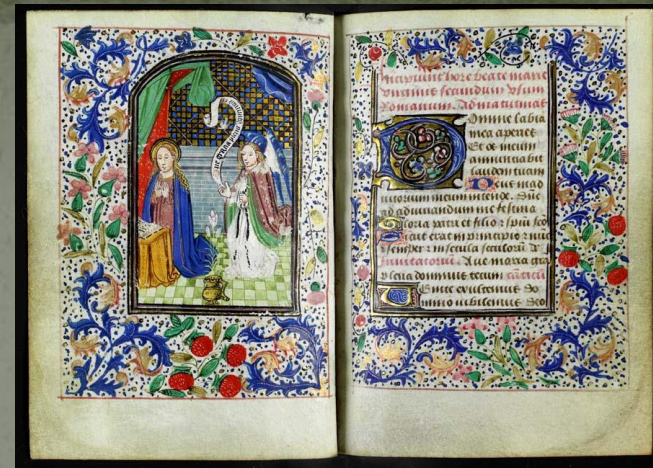 Incipiunt hore beate marie
virginis secundum vsum
Romanum. Ad matutinas
Domine labia
mea aperies
Et os meum
annunciabit
laudem tuam
Deus in ad
iutorium meum intende.
ad adiuuandum me festina
Gloria patri et filio:
Sicut erat in principio
semper in secula seculorum
Aue maria gra
plena dominus tecum
Uenite exultemus do
mino iubilemus deo